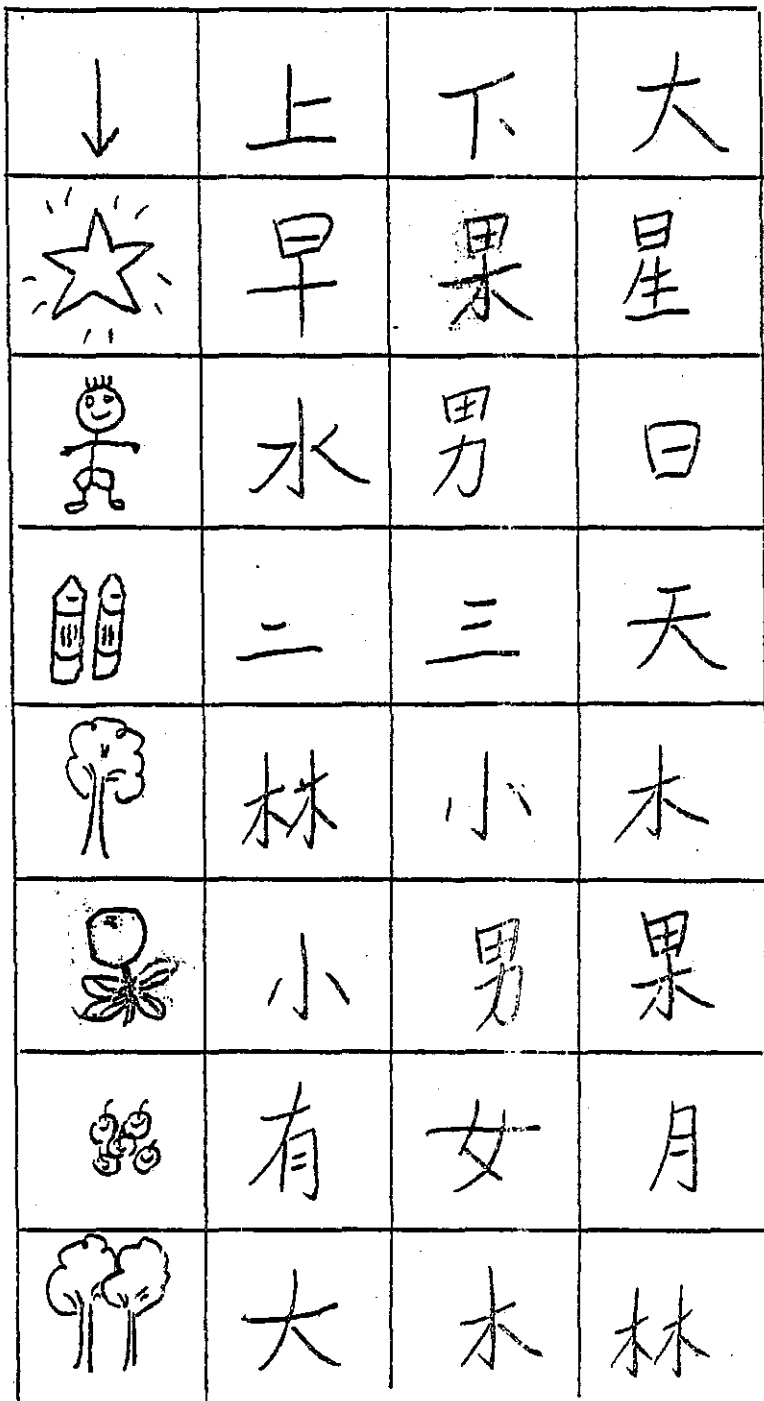 上 下 大
早 果 星
水 男 日
二 三 天
林 小 木
小 男 果
有 女 月
大 木 林